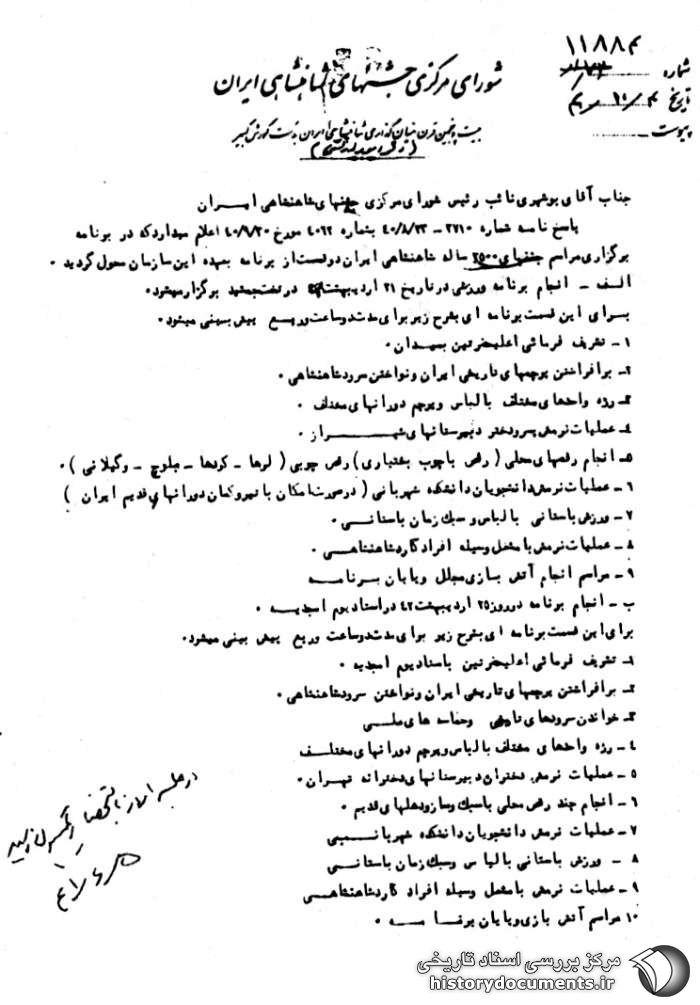 شماره ۱۱۸۸۴
تاریخ
پیوست
شورای مرکزی جشنهای شاهنشاهی ایران
بیست و پنجمین قرن بنیان گذاری شاهنشاهی ایران بدست کورش کبیر
جناب آقای بوشهری نائب رئیس شورای مرکزی جشنهای شاهنشاهی ایـــران
پاسخ نامه شماره ۲۷۱۰ - ۴۰/۸/۲۳ بشماره ۴۰۶۲ مورخ ۴۰/۹/۲۰ اعلام میداردکه در برنامه
برگزاری مراسم جشنهای ۲۵۰۰ ساله شاهنشاهی ایران دوقسمت از برنامه بعهده این سازمان محول گردید .
الف - انجام برنامه ورزشی در تاریخ ۲۱ اردیبهشت در تخت جمشید برگزار میشود.
بـرای این قسمت برنامه ای بشرح زیر برای مدت دو ساعت و ربـــع پیش بینی میشود.
۱- تشریف فرمائی اعلیحضرتین بمیـدان.
۲- برافراختن پرچمهای تاریخی ایران و نواختن سرود شاهنشاهی .
۳- رژه واحدهای مختلف با لباس و پرچم دورانهای مختلف .
۴- عملیات نرمش پسر و دختر دبیرستانهای شیـــــراز .
۵- انجام رقصهای محلی ( رقص با چوب بختیاری ) رقص چوبی ( لرها - کردها - بلوچ - وگیلانی ) .
۶- عملیات نرمش دانشجویان دانشکده شهربانی ( در صورت امکان با تیر و کمان دورانهای قدیم ایران )
۷- ورزش باستانی با لباس و سبک زمان باستانـــی .
۸- عملیات نرمش با مشعل وسیله افراد گارد شاهنشاهـــی .
۹- مراسم انجام آتش بازی مجلل و پایان بـرنامـــه
ب - انجام برنامه در روز ۲۵ اردیبهشت ۴۲ در استادیوم امجدیــه .
برای این قسمت برنامه ای بشرح زیر برای مدت دو ساعت و ربع پیش بینی میشود.
۱- تشریف فرمائی اعلیحضرتین باستادیوم امجدیه .
۲- برافراختن پرچمهای تاریخی ایران و نواختن سرود شاهنشاهی .
۳- خواندن سرودهای تاریخی و حماسه های ملـــی
۴- رژه واحدهای مختلف با لباس و پرچم دورانهای مختلـــف
۵- عملیات نرمش دختران دبیرستانهای دخترانه تهـران .
۶- انجام چند رقص محلی با سبک و ساز و دهلهای قدیم .
۷- عملیات نرمش دانشجویان دانشکده شهربانـــی
۸ - ورزش باستانی با لباس و سبک زمان باستانـــی
۹- عملیات نرمش با مشعل وسیله افراد گارد شاهنشاهـــی
۱۰ مراسم آتش بازی و پایان برنامـــه .
در جلسه
مرکز بررسی اسناد تاریخی
historydocuments.ir